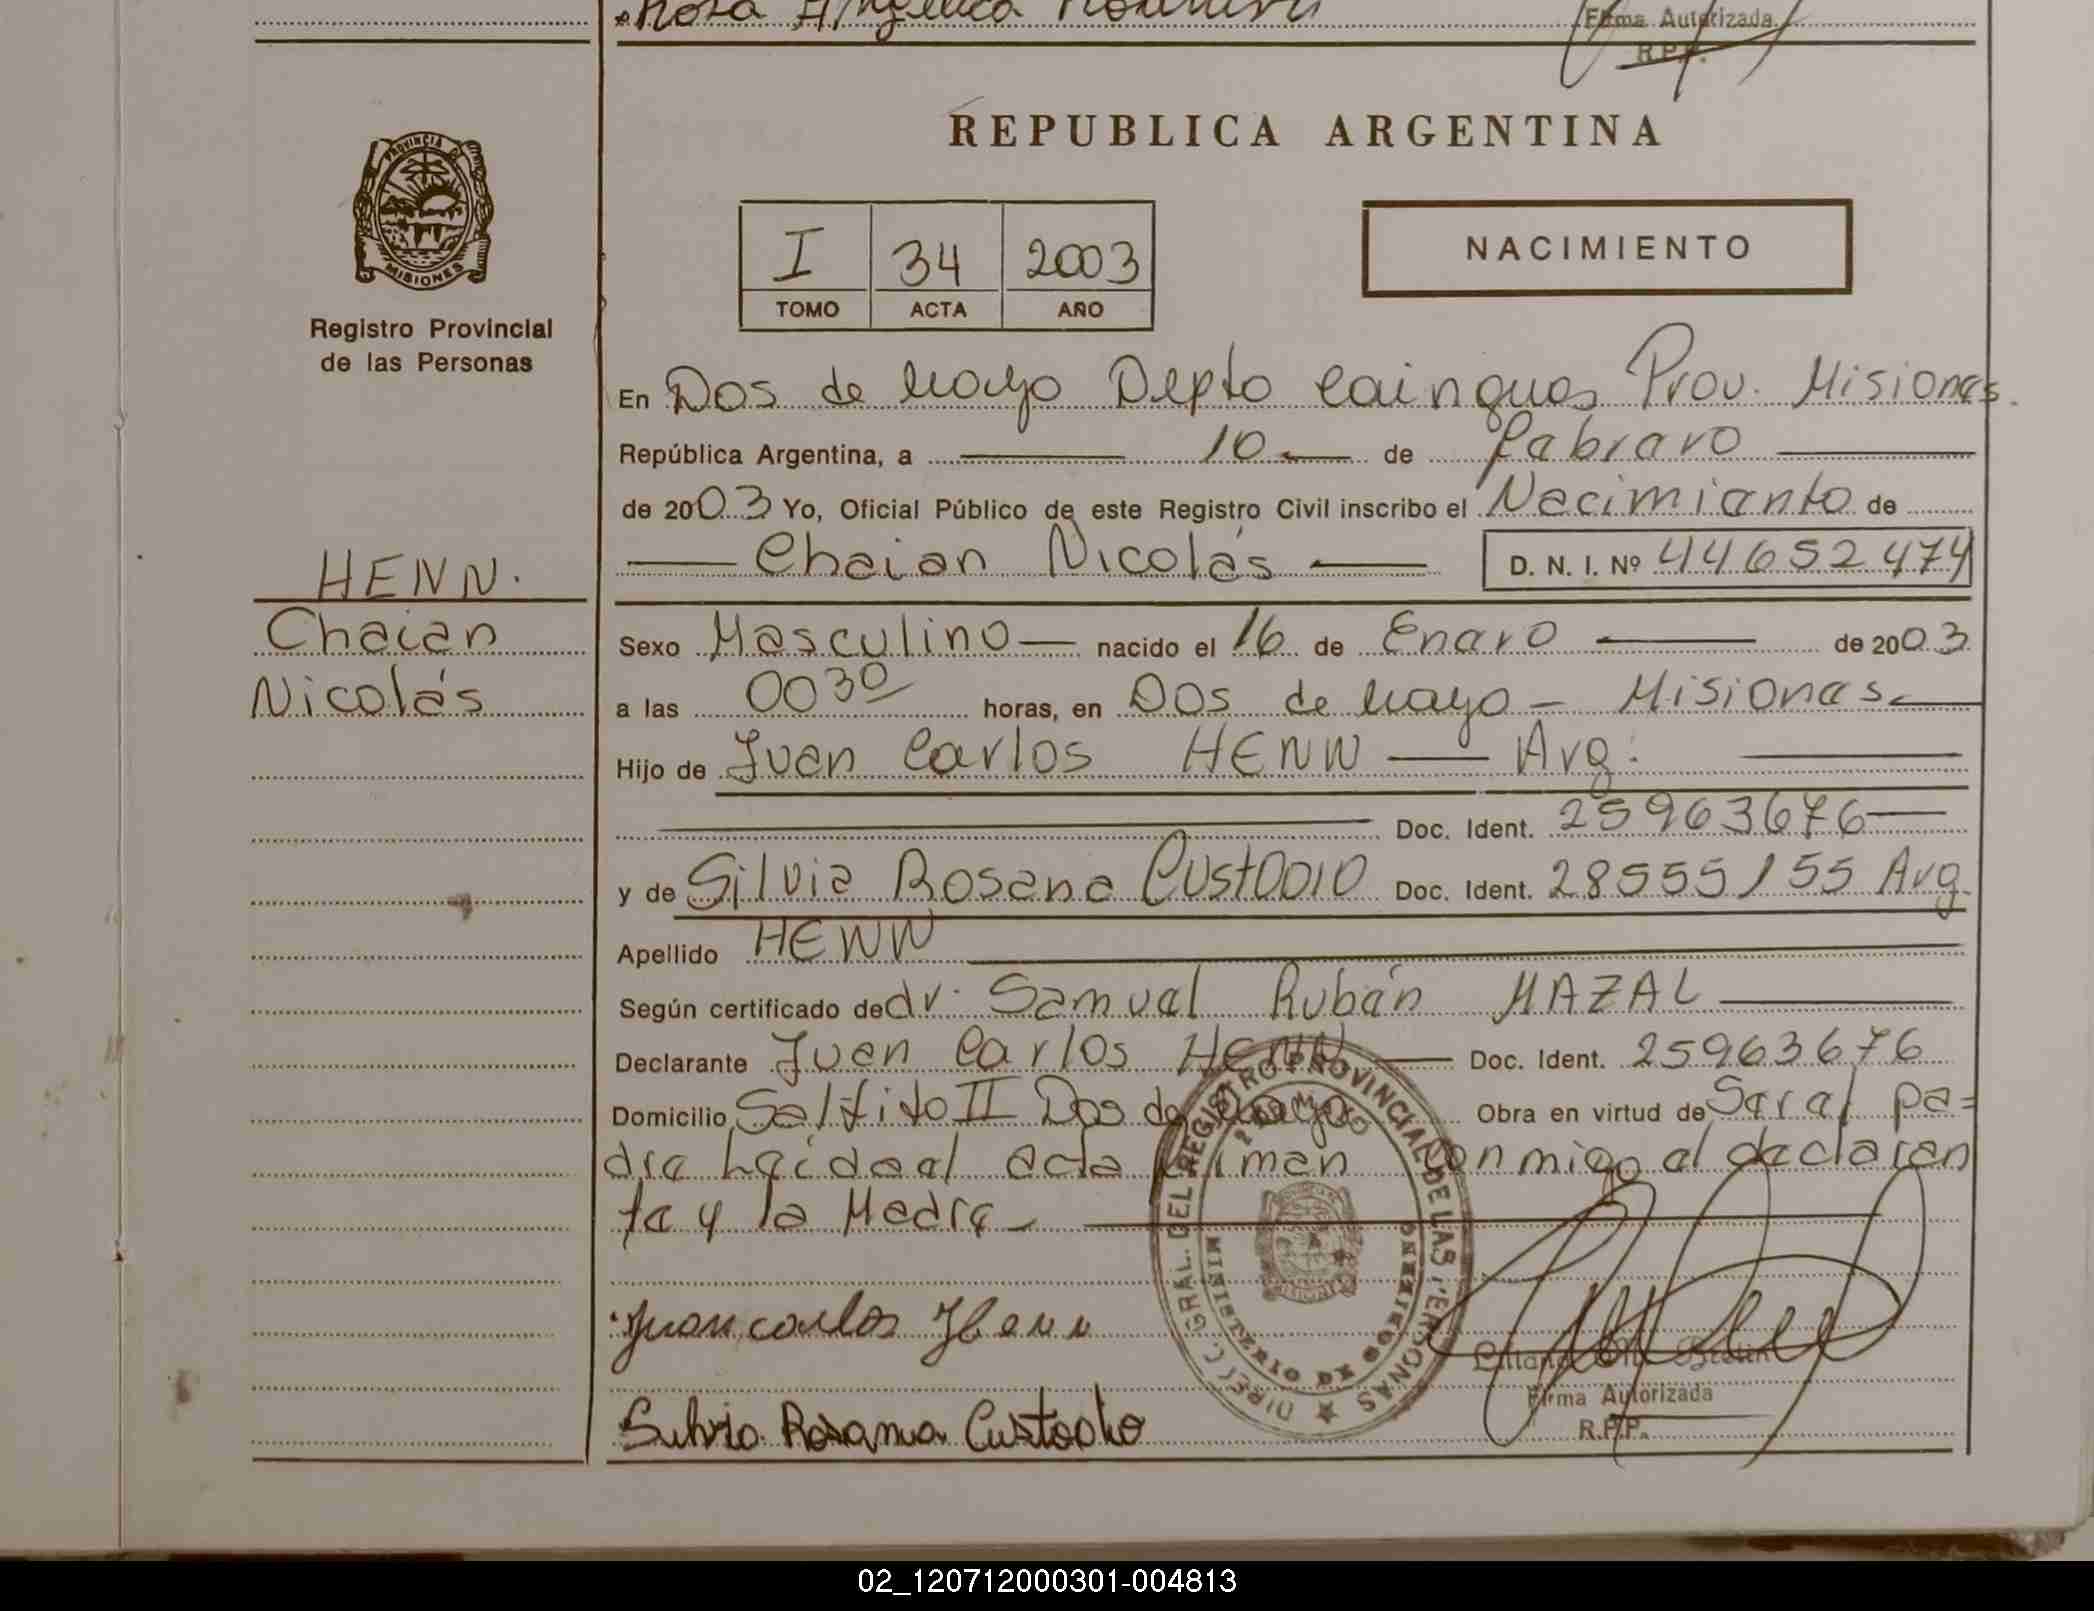 Rosa Angelica
Firma Autorizada
R.P.P.
PROVINCIA DE
MISIONES
Registro Provincial
de las Personas
REPUBLICA ARGENTINA
I 34 2003
TOMO ACTA AÑO
NACIMIENTO
En Dos de Mayo Depto Cainguas Prov. Misiones.
República Argentina, a 10 de Febrero
de 2003 Yo, Oficial Público de este Registro Civil inscribo el Nacimiento de
Chaian Nicolás D. N. I. Nº 44652474
HENN.
Chaian
Nicolás
Sexo Masculino nacido el 16 de Enero de 2003
a las 0030 horas, en Dos de Mayo - Misiones
Hijo de Juan Carlos HENN Arg.
Doc. Ident. 25963676
y de Silvia Rosana CUSTODIO Doc. Ident. 28555155 Arg
Apellido HENN
Según certificado de dr. Samuel Rubén MAZAL
Declarante Juan Carlos HENN Doc. Ident. 25963676
Domicilio Saltito II Dos de Mayo Obra en virtud de Ser el pa=
dre Leida el acta firman conmigo el declaran
te y la Madre
DIRECC. GRAL. DEL REGISTRO PROVINCIAL DE LAS PERSONAS
2 DE MAYO
MINISTERIO DE GOBIERNO
Juan carlos Henn
Firma Autorizada
R.P.P.
Silvia Rosana Custodio
02_120712000301-004813